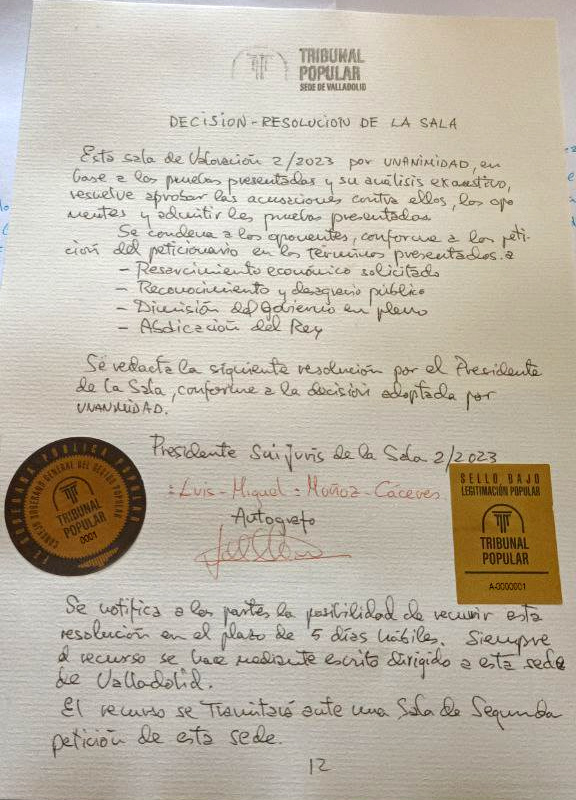 TRIBUNAL
POPULAR
SEDE DE VALLADOLID
DECISION-RESOLUCION DE LA SALA
Esta sala de Valoración 2/2023 por UNANIMIDAD, en
base a las pruebas presentadas y su análisis exaustivo,
resuelve aprobar las acusaciones contra ellos, los opo
nentes y admitir les pruebas presentadas
Se condena a los oponentes, conforme a los peti-
ción del peticionario en los términos presentados. a
- Resarcimiento económico solicitado
- Reconocimiento y desagravio público
- Dimisión del gobierno en pleno
- Abdicación del Rey
Se redacta la siguiente resolución por el Presidente
de la Sala, conforme a la decisión adoptada por
UNANIMIDAD.
Presidente Sui Juris de la Sala 2/2023
: Luis-Miguel : Muñoz-Cáceres.
Autografo
CONSEJO SOBERANO GENERAL DEL DECIDO POPULAR
TRIBUNAL
POPULAR
0001
SELLO BAJO
LEGITIMACIÓN POPULAR
TRIBUNAL
POPULAR
A-0000001
Se notifica a las partes la posibilidad de recurrir esta
resolución en el plazo de 5 días hábiles. Siempre
el recurso se hace mediante escrito dirigido a esta sede
de Valladolid.
El recurso se Tramitará ante una Sala de Segunda
petición de esta sede.
12